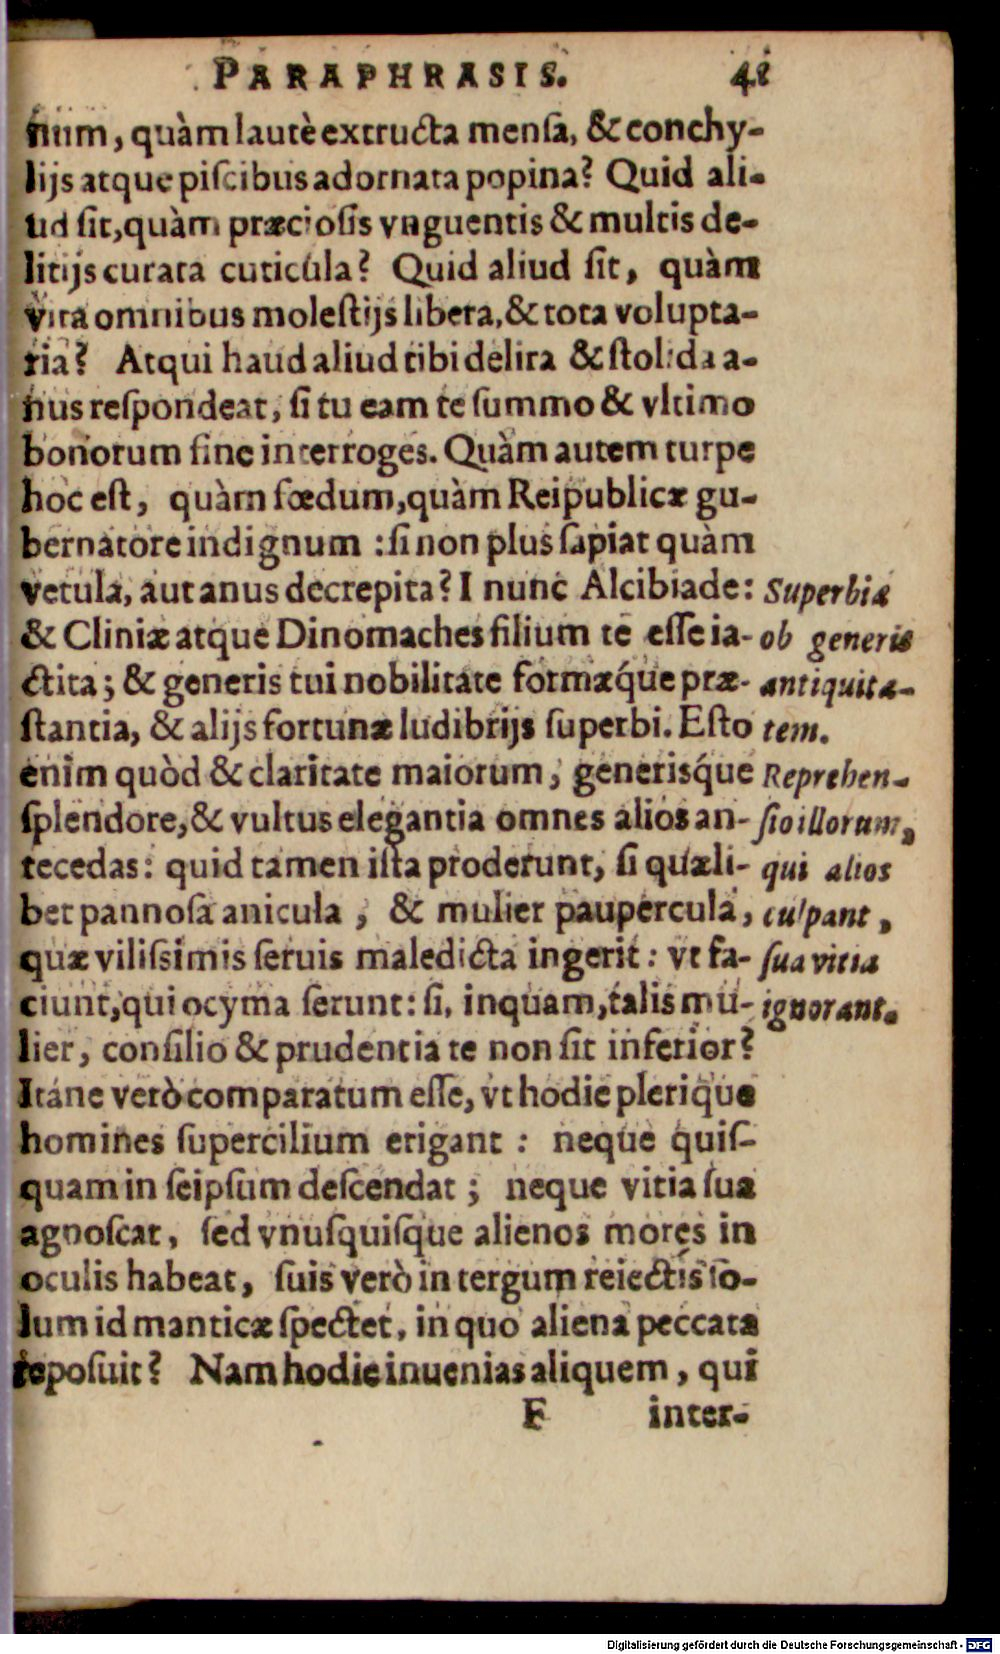 PARAPHRASIS. 41
nium, quàm lautè extructa mensa, & conchy-
lijs atque piscibus adornata popina? Quid ali-
ud sit, quàm præciosis vnguentis & multis de-
litijs curata cuticula? Quid aliud sit, quàm
vita omnibus molestijs libera, & tota volupta-
ria? Atqui haud aliud tibi delira & stolida a-
nus respondeat, si tu eam te summo & vltimo
bonorum fine interroges. Quàm autem turpe
hoc est, quàm fœdum, quàm Reipublicæ gu-
bernatore indignum : si non plus sapiat quàm
vetula, aut anus decrepita? I nunc Alcibiade:
& Cliniæ atque Dinomaches filium te esse ia-
ctita; & generis tui nobilitate formæq́ue præ-
stantia, & alijs fortunæ ludibrijs superbi. Esto
enim quòd & claritate maiorum, generisq́ue
splendore, & vultus elegantia omnes alios an-
tecedas: quid tamen ista proderunt, si quæli-
bet pannosa anicula, & mulier paupercula,
quæ vilissimis seruis maledicta ingerit: vt fa-
ciunt, qui ocyma serunt: si, inquam, talis mu-
lier, consilio & prudentia te non sit inferior?
Itáne verò comparatum esse, vt hodie plerique
homines supercilium erigant : neque quis-
quam in seipsum descendat; neque vitia sua
agnoscat, sed vnusquisque alienos mores in
oculis habeat, suis verò in tergum reiectis so-
lum id manticæ spectet, in quo aliena peccata
reposuit? Nam hodie inuenias aliquem, qui
F inter-
Superbia
ob generis
antiquita-
tem.
Reprehen-
sio illorum,
qui alios
culpant,
sua vitia
ignorant.
Digitalisierung gefördert durch die Deutsche Forschungsgemeinschaft - DFG